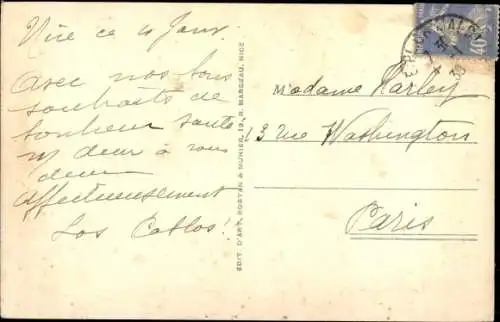 Nice ce 4 Janv.
Avec nos bons
souhaits de
bonheur santé
deux à vous
deux
affectueusement
Los Catlos!
EDIT. D'ART, ROSTAN & MUNIER, 19, R. MARCEAU, NICE
Madame Harley
13 rue Washington
Paris
40